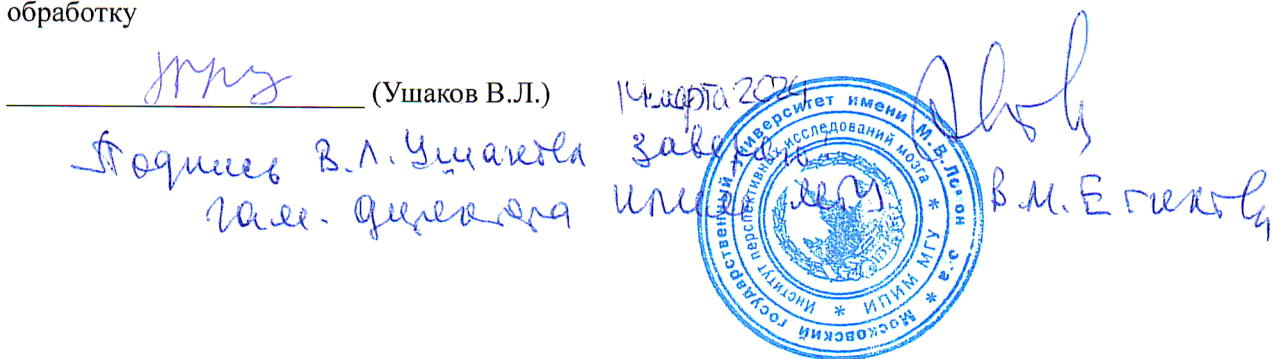 обработку
(Ушаков В.Л.)
14 марта 2024
Подпись В.Л. Ушакова заверяю
зам. директора ИПИМ МГУ В.М. Е
Московский государственный университет имени М.В.Ломоносова *
Институт перспективных исследований мозга * МГУ ИПИМ *